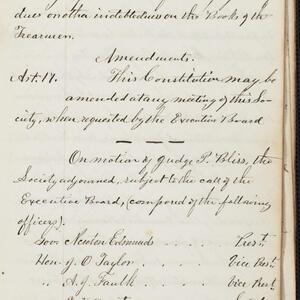 dues or other indebtedness on the Books of the
Treasurer.
Amendments.
Art. 17. This Constitution may be
amended at any meeting of this So-
ciety, when requested by the Executive Board
On motion of Judge P. Bliss, the
Society adjourned, subject to the call of the
Executive Board, (composed of the following
officers).
Gov Newton Edmunds . . . . Prest.
Hon. J. O. Taylor . . . . Vice Prest.
" A. J. Faulk . . . Vice Prest.